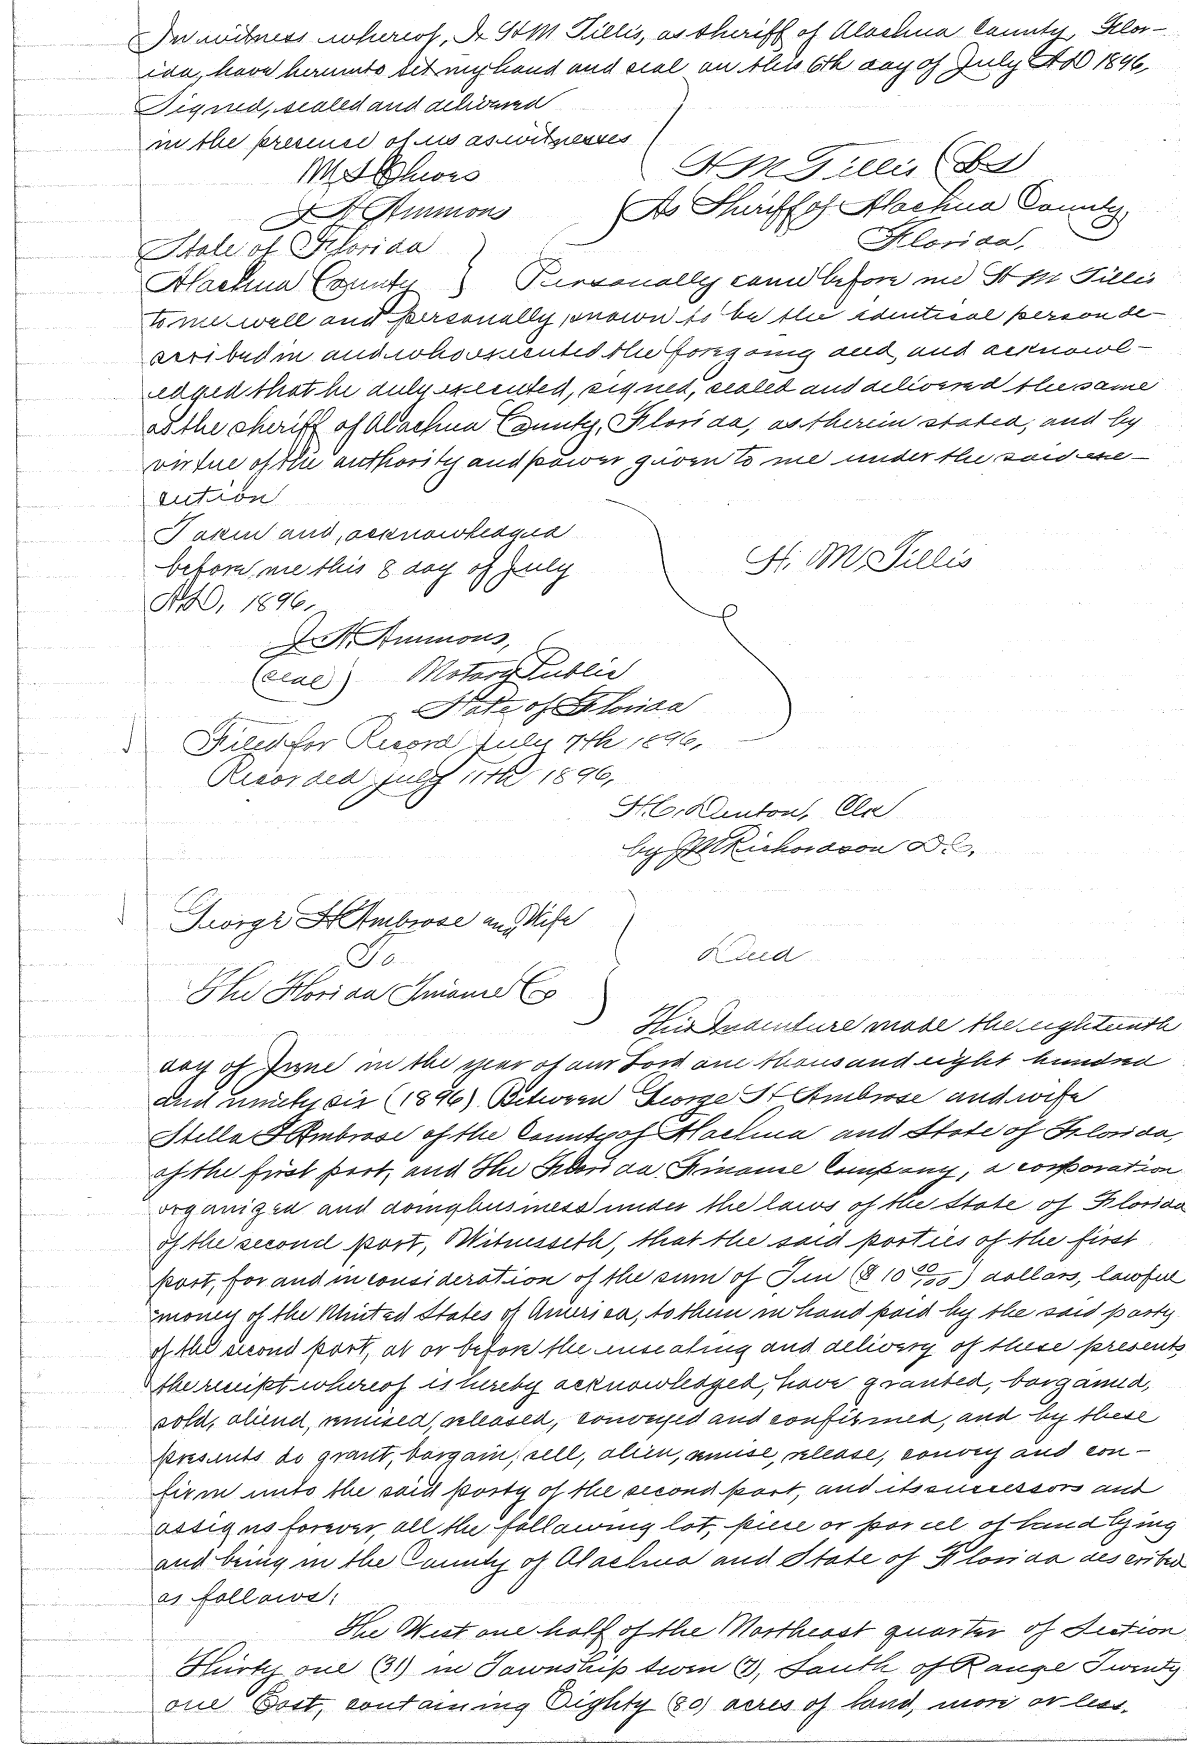 In witness whereof, I H M Tillis, as sheriff of Alachua County, Flor-
ida, have hereunto set my hand and seal on this 6th day of July AD 1896,
Signed, sealed and delivered
in the presence of us as witnesses
H M Tillis (LS)
J A Ammons
As Sheriff of Alachua County,
Florida,
State of Florida
Alachua County } Personally came before me H M Tillis
to me well and personally known to be the identical person de-
scribed in and who executed the foregoing deed, and acknowl-
edged that he duly executed, signed, sealed and delivered the same
as the sheriff of Alachua County, Florida, as therein stated, and by
virtue of the authority and power given to me under the said exe-
cution
Taken and, acknowledged
before me this 8 day of July
AD, 1896,
H. M. Tillis
J. A. Ammons,
(seal) Notary Public
State of Florida
Filed for Record July 7th 1896,
Recorded July 11th 1896,
H. C. Denton, Clk
by J M Richardson D.C.
George H Ambrose and Wife
To
Deed
The Florida Finance Co
This Indenture made the eighteenth
day of June in the year of our Lord one thousand eight hundred
and ninety six (1896) Between George H Ambrose and wife
Stella Ambrose of the County of Alachua and State of Florida,
of the first part, and The Florida Finance Company, a corporation
organized and doing business under the laws of the State of Florida
of the second part, Witnesseth, that the said parties of the first
part, for and in consideration of the sum of Ten ($10 00/100) dollars, lawful
money of the United States of America, to them in hand paid by the said party
of the second part, at or before the ensealing and delivery of these presents
the receipt whereof is hereby acknowledged, have granted, bargained,
sold, aliend, remised, released, conveyed and confirmed, and by these
presents do grant, bargain, sell, alien, remise, release, convey and con-
firm unto the said party of the second part, and its successors and
assigns forever, all the following lot, piece or parcel of land lying
and being in the County of Alachua and State of Florida described
as follows:
The West one half of the Northeast quarter of Section
Thirty one (31) in Township seven (7), South of Range Twenty
one East, containing Eighty (80) acres of land, more or less.